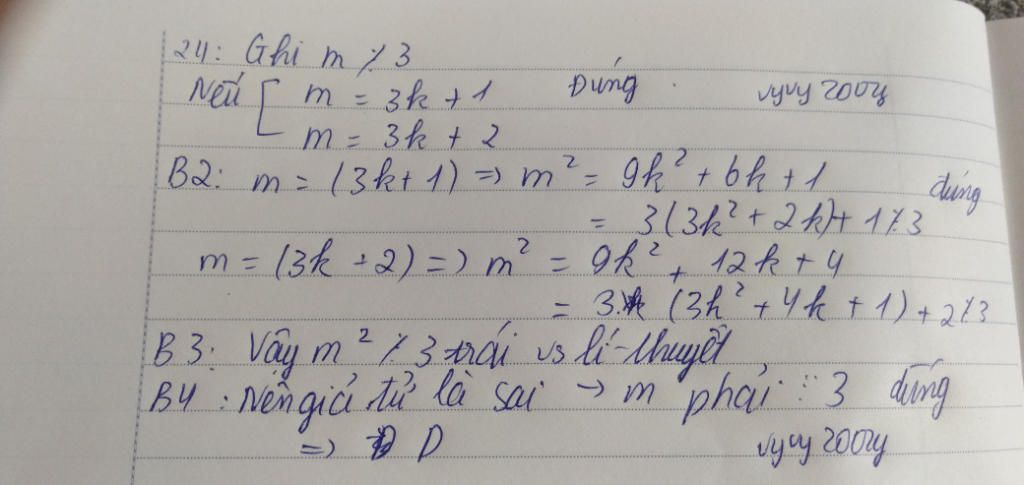 24: Ghi m ٪ 3
Nếu [ m = 3k + 1 Đúng vyvy 2002y
m = 3k + 2
B2: m = (3k + 1) => m² = 9k² + 6k + 1 đúng
= 3(3k² + 2k) + 1 ٪ 3
m = (3k + 2) => m² = 9k² + 12k + 4
= 3. (3k² + 4k + 1) + 2 ٪ 3
B3: Vậy m² ٪ 3 trái vs lí thuyết
B4: Nên giả tử là sai → m phải ⋮ 3 đúng
=> D vyvy 2002y